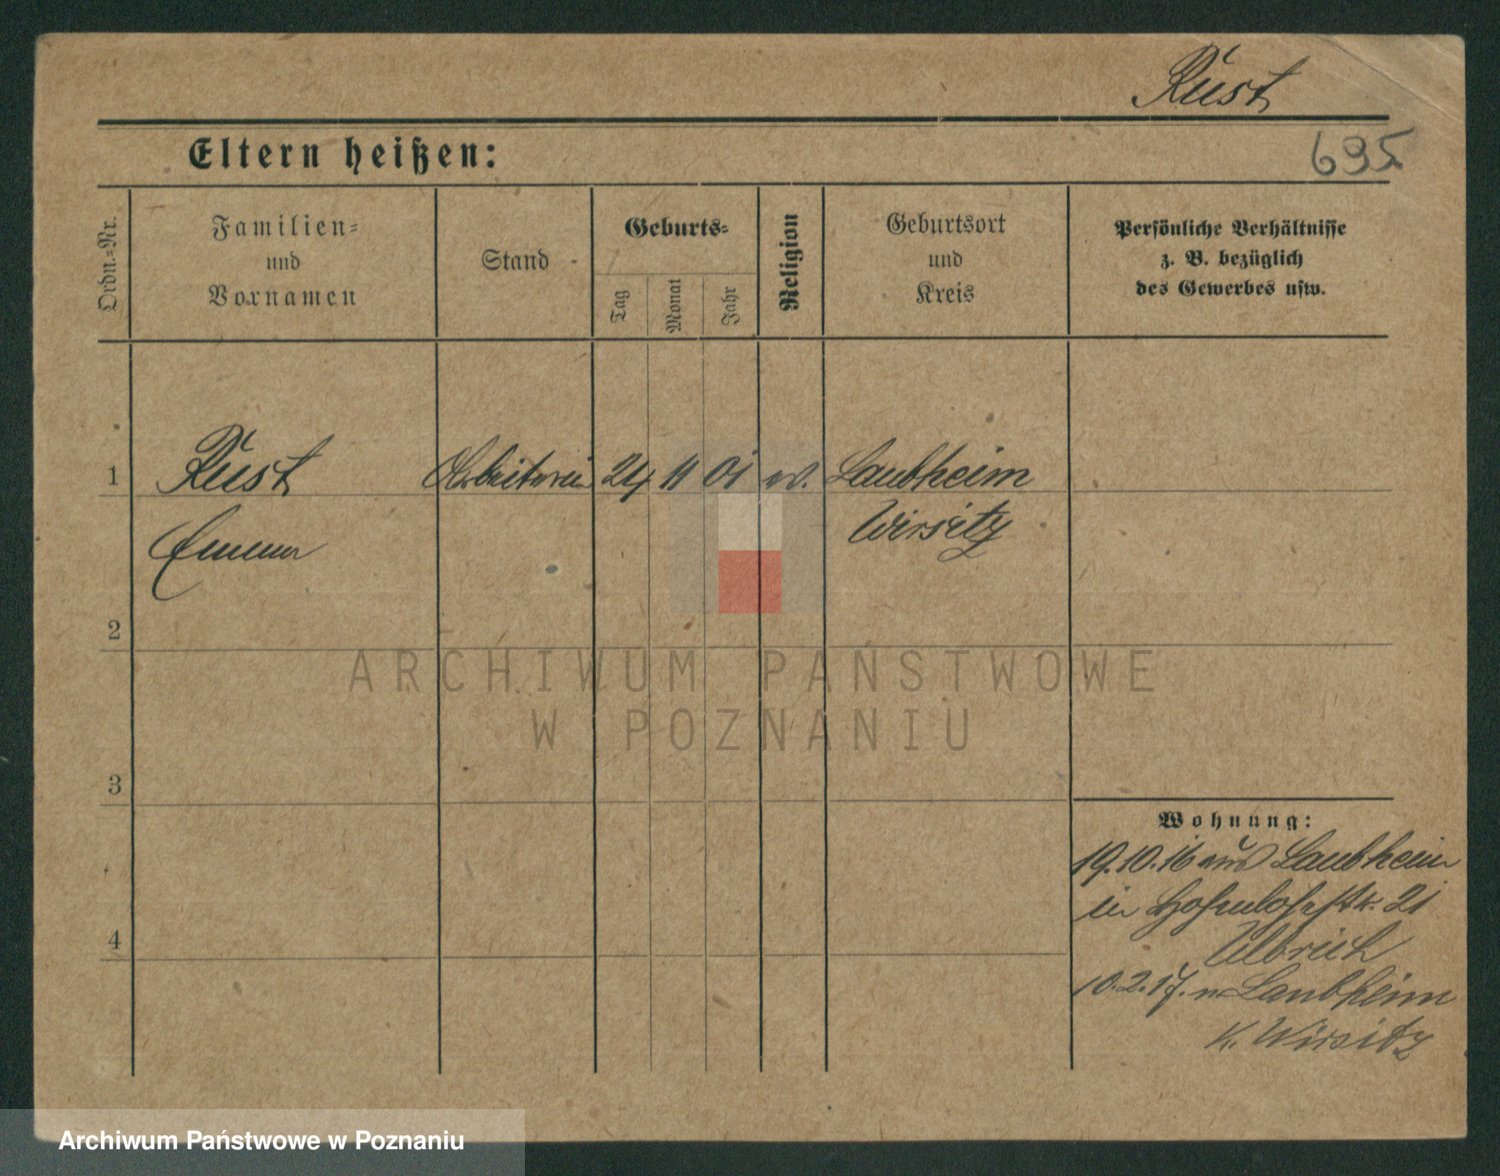 Rust
695
Eltern heißen:
Ordn.-Nr.
Familien-
und
Vornamen
Stand
Geburts-
Tag
Monat
Jahr
Religion
Geburtsort
und
Kreis
Persönliche Verhältnisse
z. B. bezüglich
des Gewerbes usw.
1
Rust
Arbeiterin
24
11
01
ev.
Laubheim
Emma
Wirsitz
2
ARCHIWUM PAŃSTWOWE
W POZNANIU
3
Wohnung:
19.10.16 aus Laubheim
in Hohenlohestr. 21
4
Ulbrich
10.2.17. n Laubheim
K. Wirsitz
Archiwum Państwowe w Poznaniu